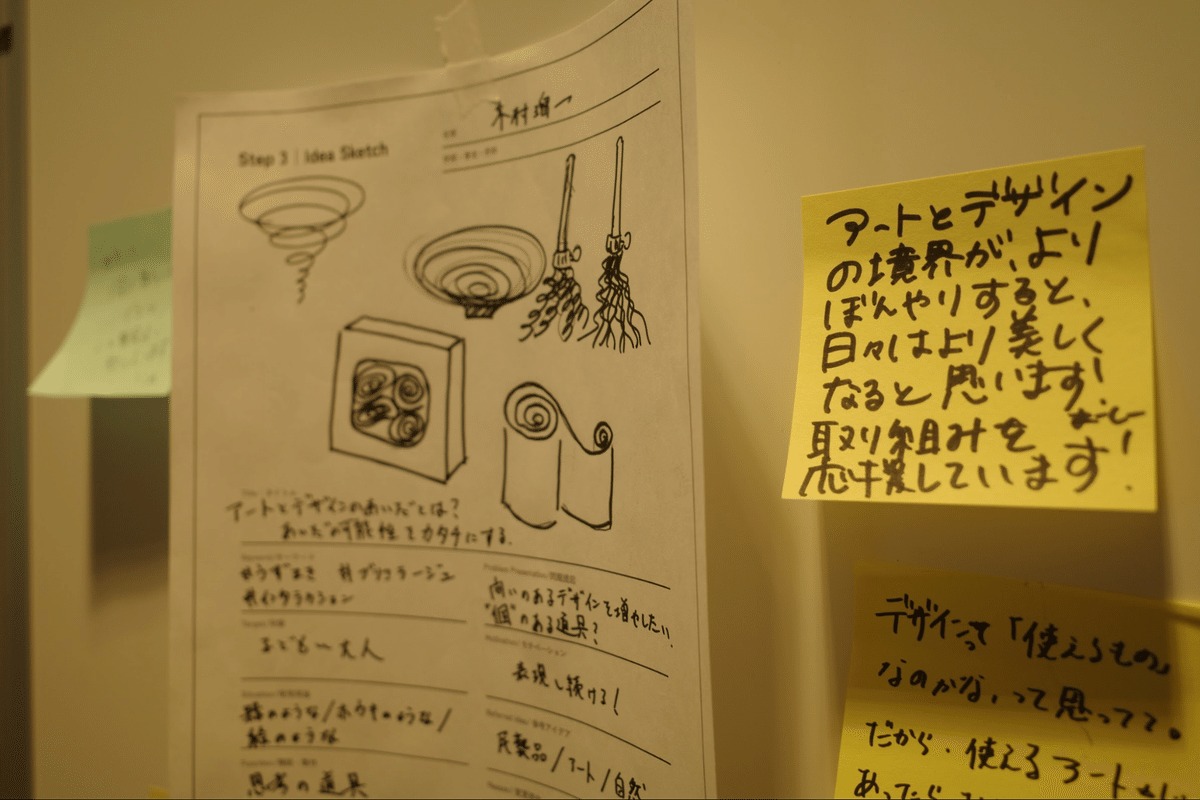 木村瑠一
Step 3 | Idea Sketch
アートとデザインのあいだとは?
あいだの可能性をカタチにする.
#うずまき #ブリコラージュ
#インタラクション
Problem Presentation/問題提起
問いのあるデザインを増やしたい.
"個"のある道具?
こども〜大人
Motivation/モチベーション
表現し続ける!
器のような/ホウキのような/
絵のような
民藝品/アート/自然
思考の道具
アートとデザイン
の境界が、より
ぼんやりすると、
日々はより美しく
なると思います!
取り組みを
応援しています!
デザインって「使えるもの」
なのかな、って思ってて。
だから、使えるアート
あったら